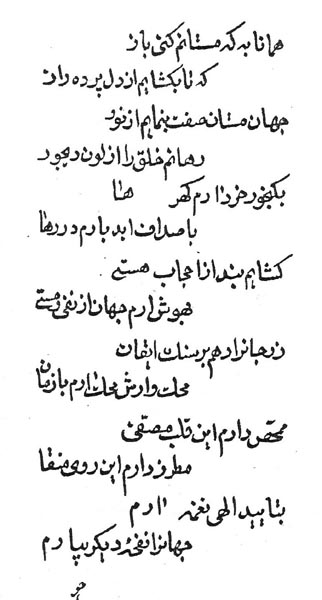 همانا به که مستانم کنی باز
که تا بکشایم از دل پرده راز
جهان مستان صفت بنمایم از نور
رهانم خلق را از لون دیجور
خرد ارم کهر
با صداف ابد بارم دررها
کشایم بند از احجاب هستی
بهوش ارم جهان از نفی و مستی
زر جانرا دهم بر سنک ایقان
محک وارش محک ارم بازیان
ممحص دارم این قلب مصفی
مطرز دارم این روی منقا
بتایید الهی نغمه ارم
جهانرا نفخهٔ دیکر بیارم